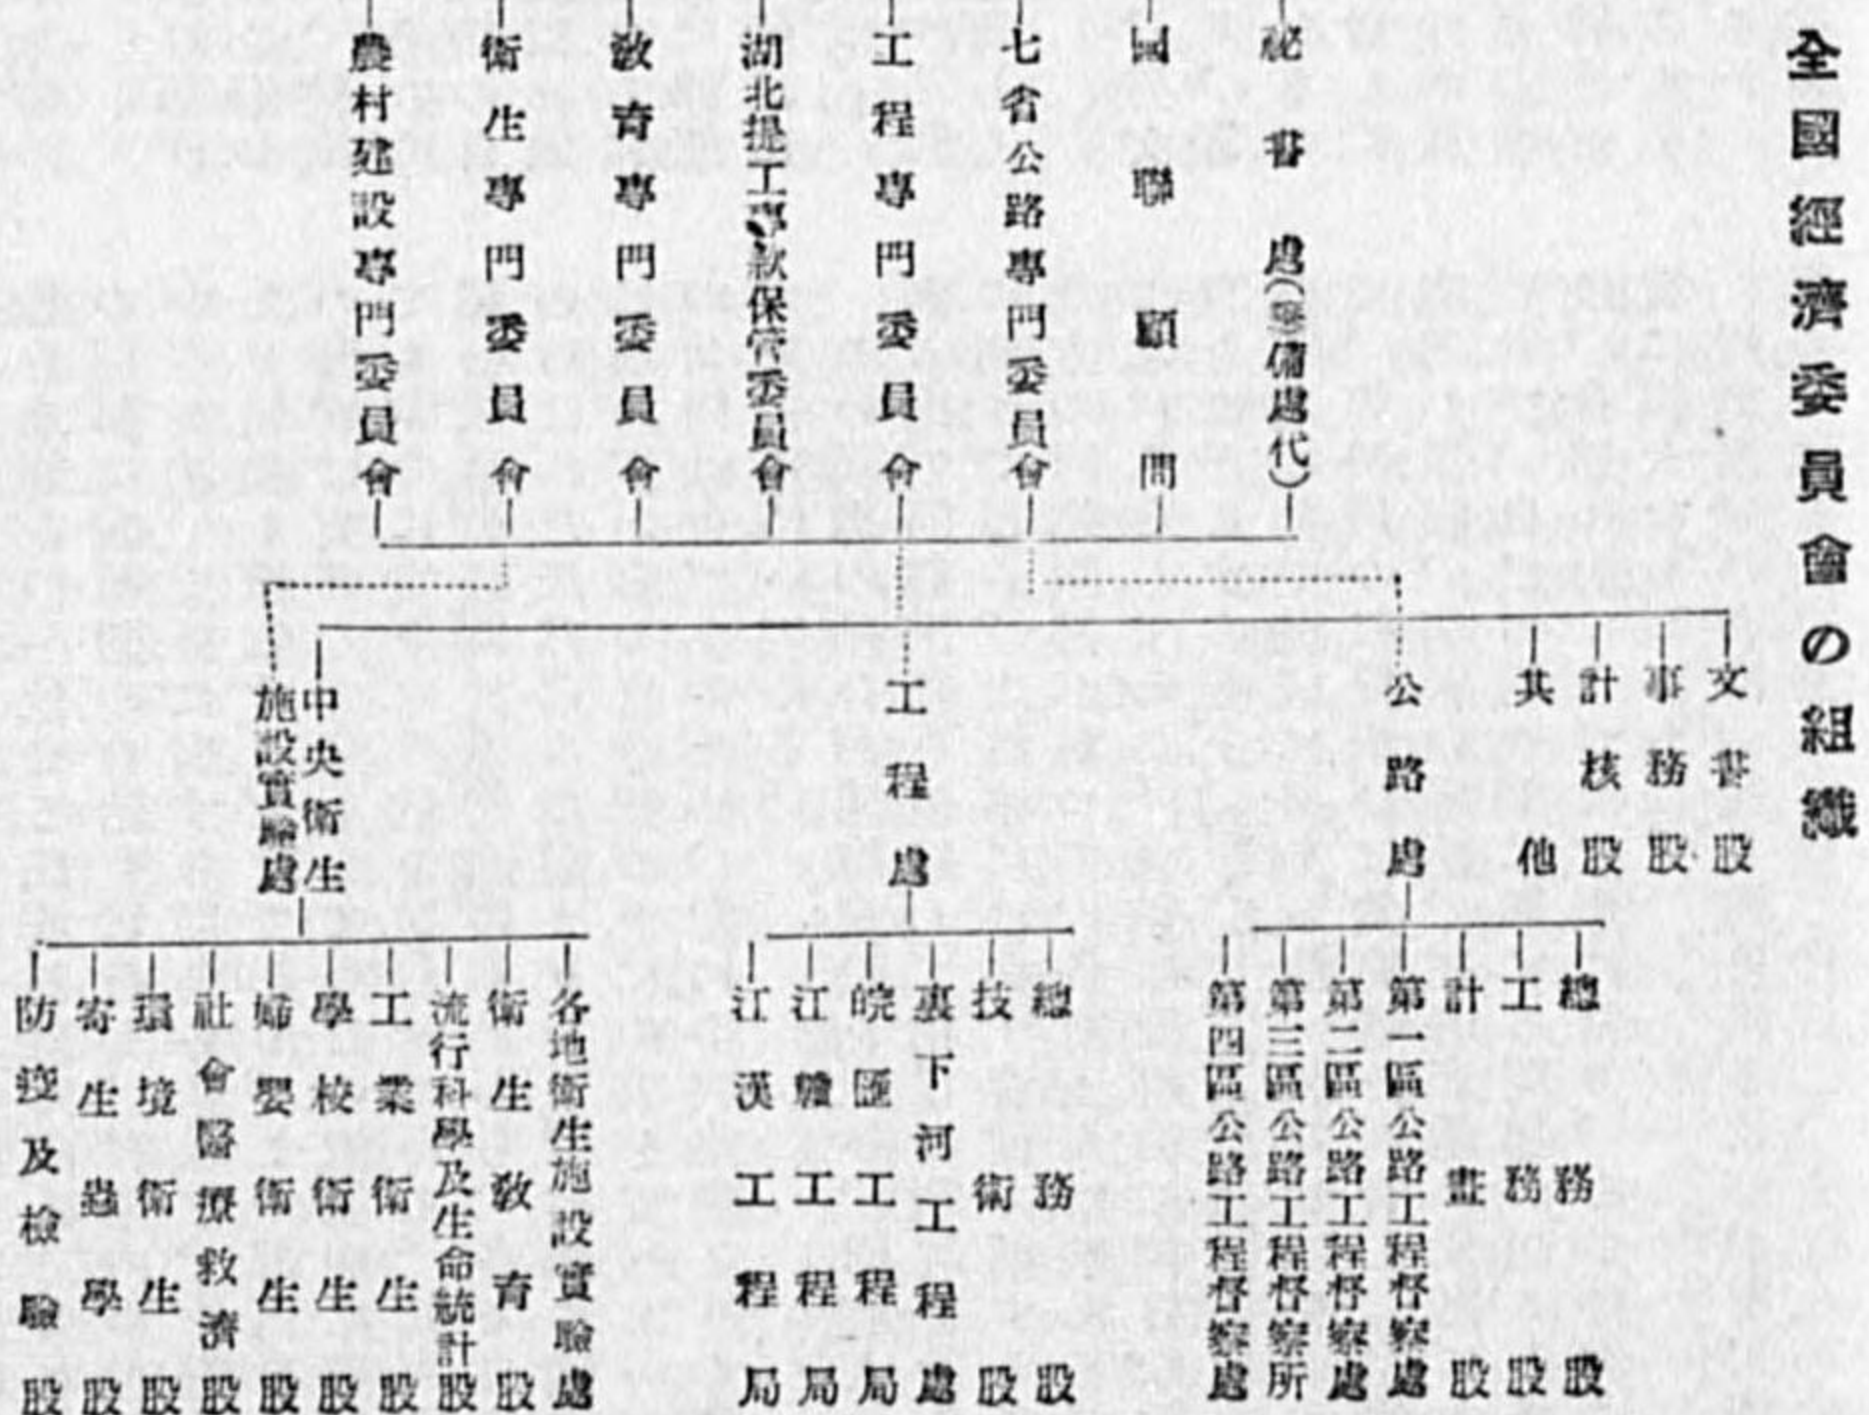 全國經濟委員會の組織
祕書處(籌備處代)
國聯顧問
七省公路專門委員會
工程專門委員會
湖北提工專款保管委員會
教育專門委員會
衞生專門委員會
農村建設專門委員會
文書股
事務股
計核股
其他
公路處
工程處
中央衞生
施設實驗處
總務股
工務股
計畫股
第一區公路工程督察處
第二區公路工程督察處
第三區公路工程督察所
第四區公路工程督察處
總務股
技術股
裏下河工程處
皖匯工程局
江贛工程局
江漢工程局
各地衞生施設實驗處
衞生教育股
流行科學及生命統計股
工業衞生股
學校衞生股
婦嬰衞生股
社會醫療救濟股
環境衞生股
寄生蟲學股
防疫及檢驗股